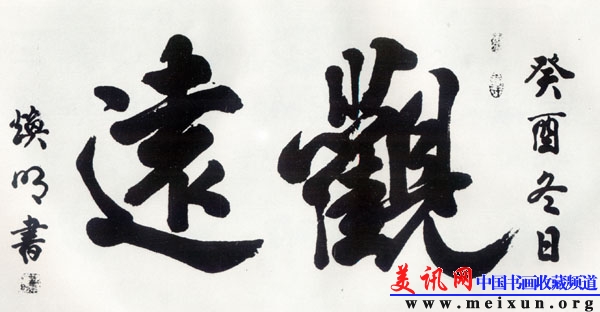 癸酉冬日
觀遠
煥明書
美讯网 中国书画收藏频道
www.meixun.org